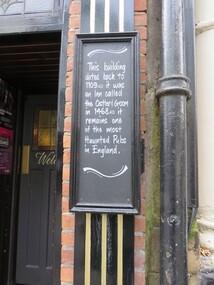 This building
dates back to
1109AD it was
an Inn called
the Ostlers Groom
in 1468AD it
remains one
of the most
Haunted Pubs
in England.
Wel